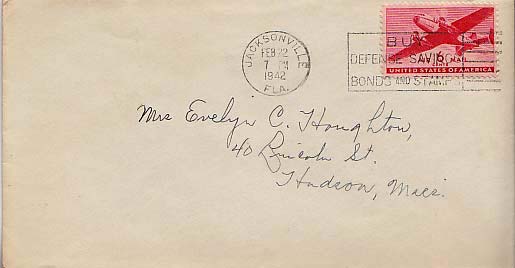 JACKSONVILLE
FEB 22
7 PM
1942
FLA.
BUY
DEFENSE SAVINGS
BONDS AND STAMPS
AIR MAIL
UNITED STATES OF AMERICA
Mrs Evelyn C. Houghton,
40 Lincoln St.
Hudson, Mass.